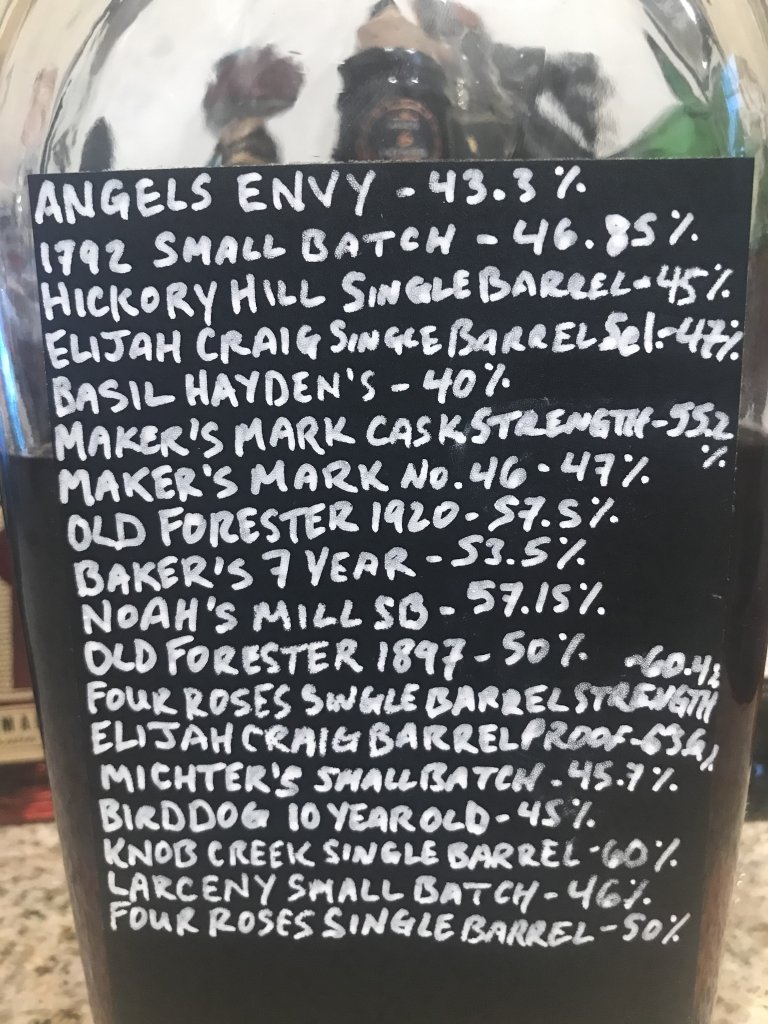 ANGELS ENVY - 43.3%
1792 SMALL BATCH - 46.85%
HICKORY HILL SINGLE BARREL - 45%
ELIJAH CRAIG SINGLE BARREL Sel. - 47%
BASIL HAYDEN'S - 40%
MAKER'S MARK CASK STRENGTH - 55.2
%
MAKER'S MARK No. 46 - 47%
OLD FORESTER 1920 - 57.5%
BAKER'S 7 YEAR - 53.5%
NOAH'S MILL SB - 57.15%
OLD FORESTER 1897 - 50%
-60.4%
FOUR ROSES SINGLE BARREL STRENGTH
ELIJAH CRAIG BARREL PROOF - 63.6%
MICHTER'S SMALL BATCH - 45.7%
BIRD DOG 10 YEAR OLD - 45%
KNOB CREEK SINGLE BARREL - 60%
LARCENY SMALL BATCH - 46%
FOUR ROSES SINGLE BARREL - 50%